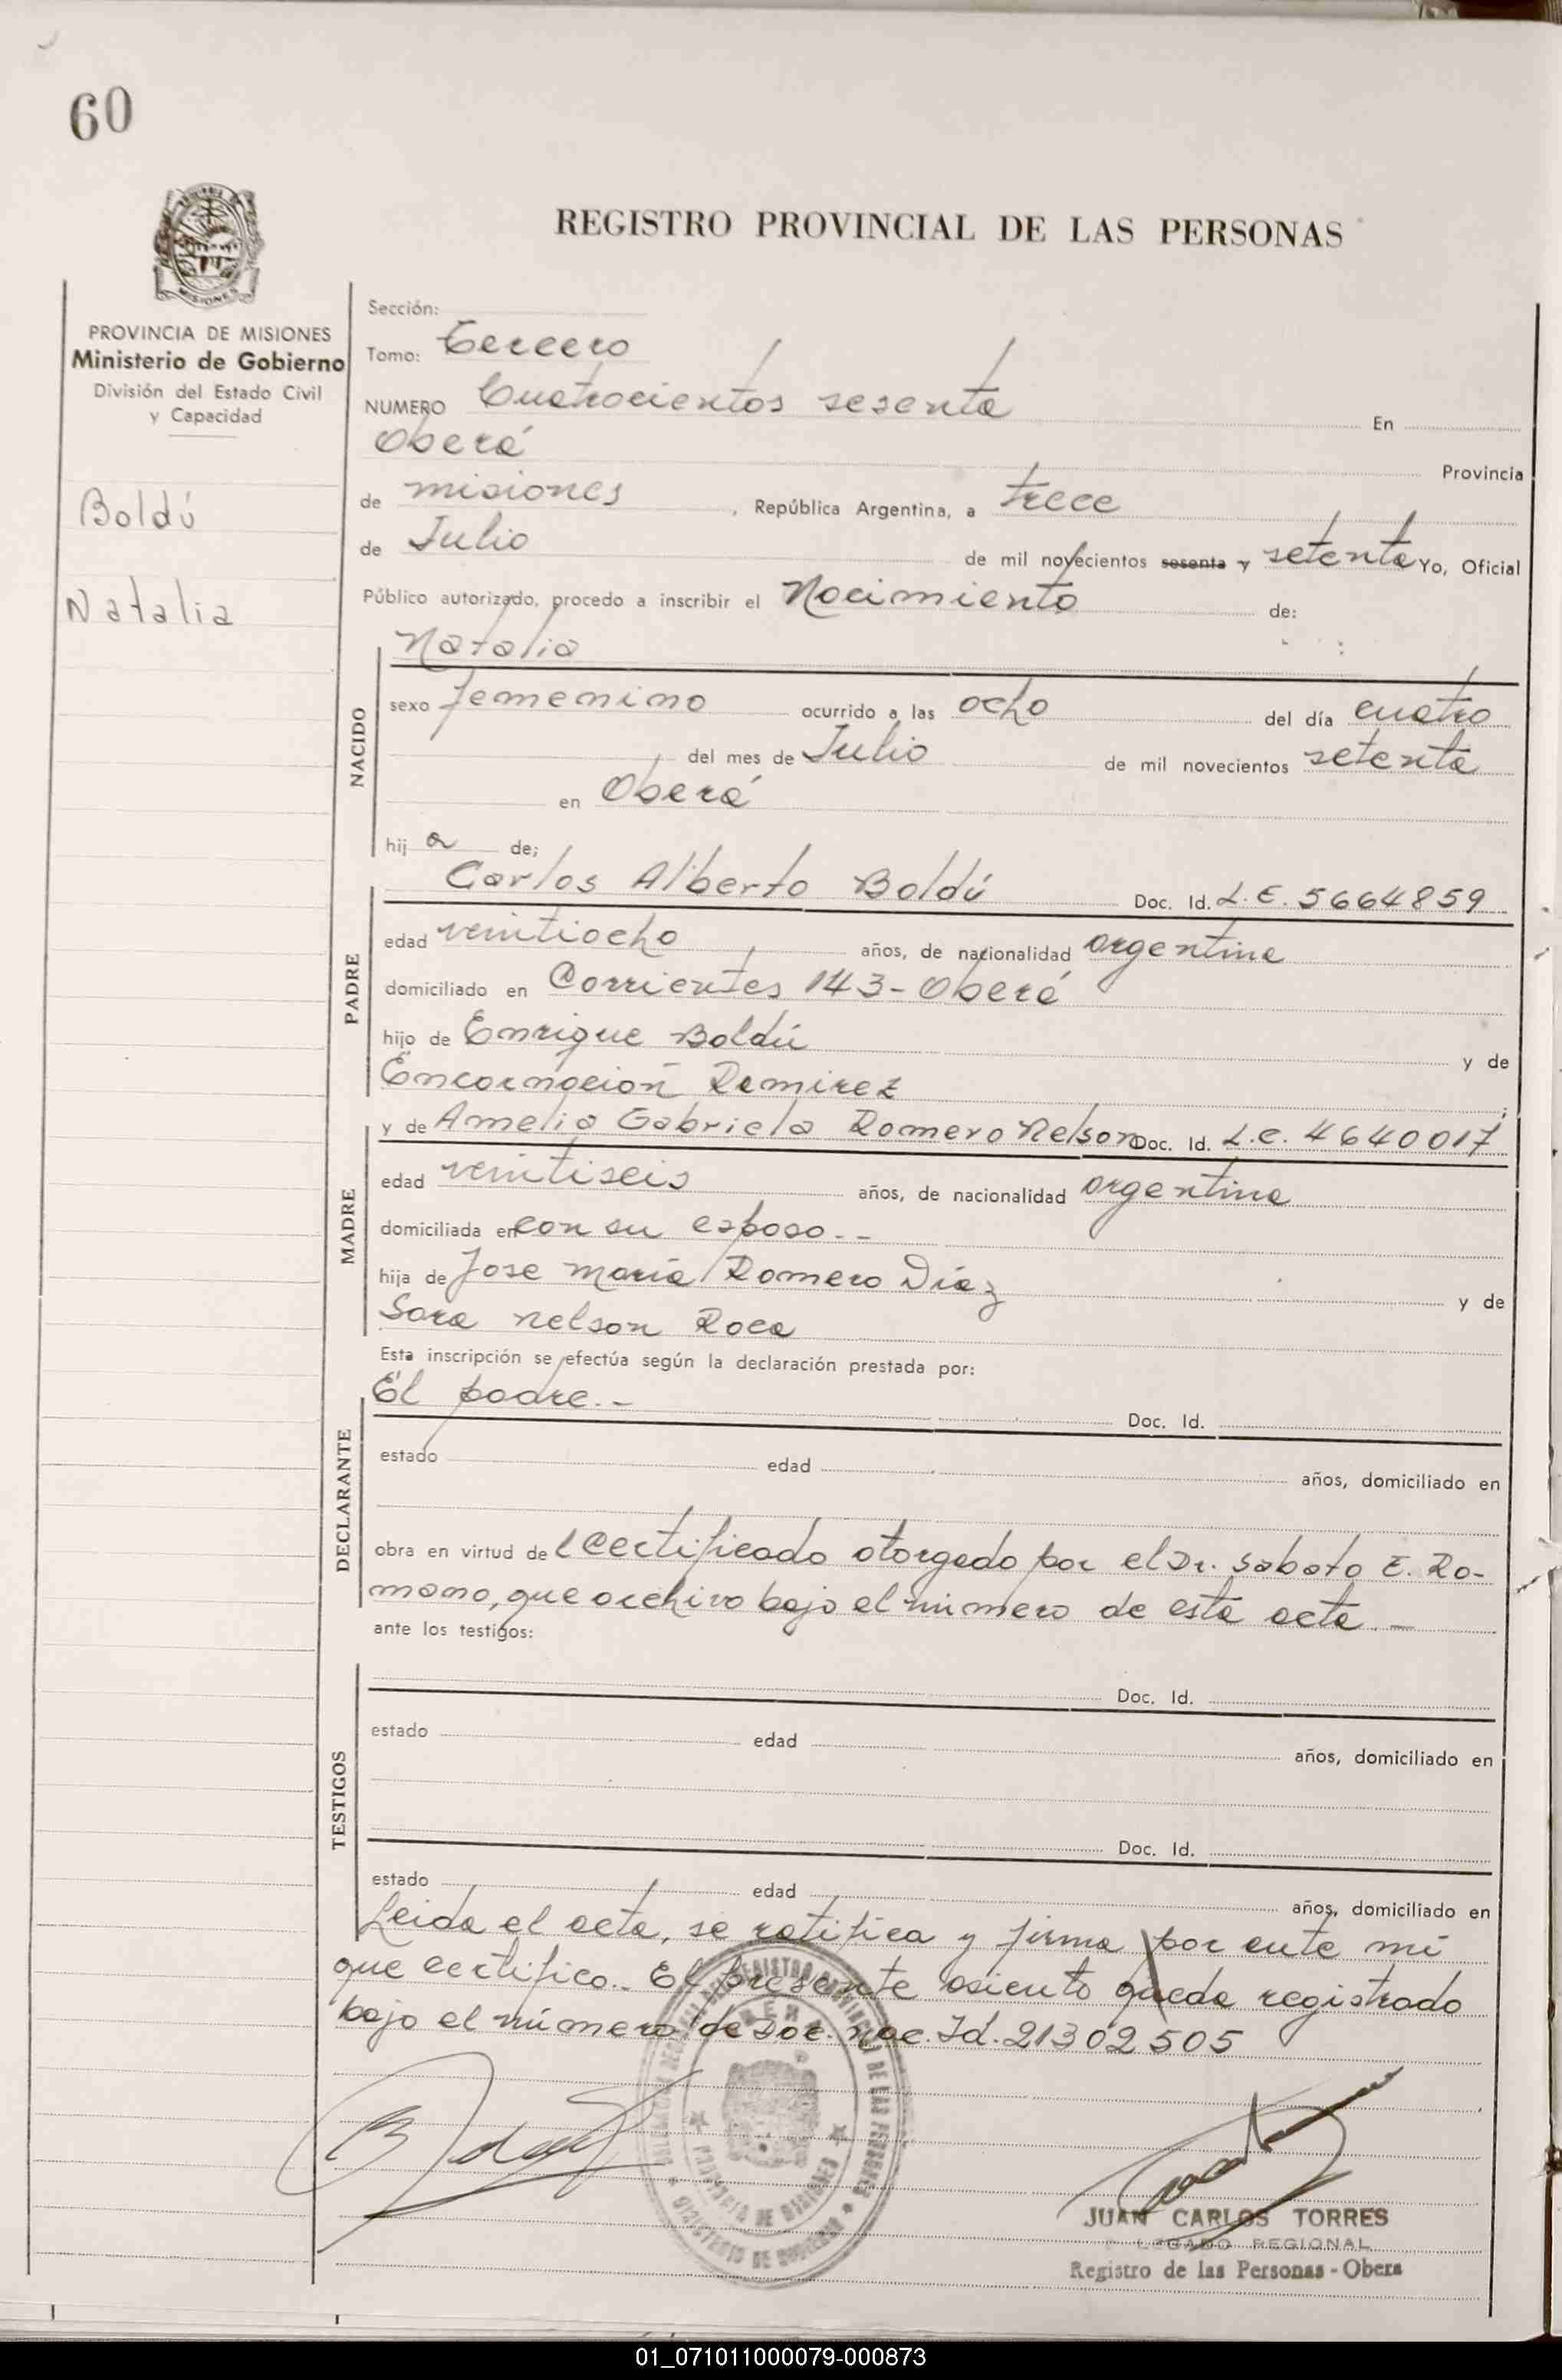 60
REGISTRO PROVINCIAL DE LAS PERSONAS
MISIONES
PROVINCIA DE MISIONES
Ministerio de Gobierno
División del Estado Civil
y Capacidad
Boldú
Natalia
Sección:
Tomo: Tercero
NUMERO Cuatrocientos sesenta En
Oberá Provincia
de misiones, República Argentina, a trece
de Julio de mil novecientos sesenta y setenta Yo, Oficial
Público autorizado, procedo a inscribir el Nacimiento de:
Natalia
NACIDO
sexo femenino ocurrido a las ocho del día cuatro
del mes de Julio de mil novecientos setenta
en Oberá
hij a de;
Carlos Alberto Boldú Doc. Id. L.E. 5664859
PADRE
edad veintiocho años, de nacionalidad argentina
domiciliado en Corrientes 143 - Oberá
hijo de Enrique Boldú y de
Encarnación Remirez
y de Amelia Gabriela Romero Nelson Doc. Id. L.C. 4640017
MADRE
edad veintiseis años, de nacionalidad argentina
domiciliada en con su esposo.--
hija de Jose María Romero Díaz y de
Sara Nelson Roca
Esta inscripción se efectúa según la declaración prestada por:
El padre.- Doc. Id.
DECLARANTE
estado edad años, domiciliado en
obra en virtud de l certificado otorgado por el Dr. Sabato E. Ro-
mano, que archivo bajo el número de esta acta.-
ante los testigos:
Doc. Id.
TESTIGOS
estado edad años, domiciliado en
Doc. Id.
estado edad años, domiciliado en
Leida el acta, se ratifica y firma por ente mi
que certifico.- El presente asiento queda registrado
bajo el número de Doc. nac. Id. 21302505
PROVINCIA DE MISIONES
MINISTERIO DE GOBIERNO
JUAN CARLOS TORRES
LEGADO REGIONAL
Registro de las Personas - Obera
01_071011000079-000873